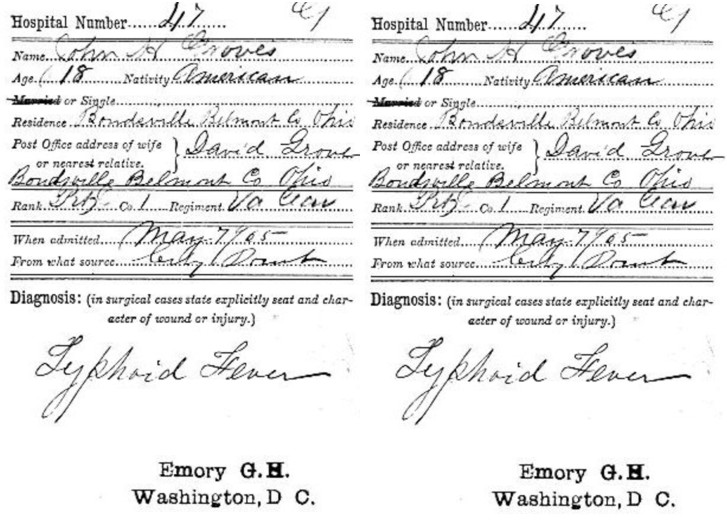 Hospital Number 47
Name John H Groves
Age 18 Nativity American
Married or Single
Residence Bondsville Belmont Co Ohio
Post Office address of wife
or nearest relative. } David Grove
Bondsville Belmont Co Ohio
Rank Prt Co. I Regiment Va Cav
When admitted May 7 /65
From what source City Point
Diagnosis: (in surgical cases state explicitly seat and char-
acter of wound or injury.)
Typhoid Fever
Emory G. H.
Washington, D C.
Hospital Number 47
Name John H Groves
Age 18 Nativity American
Married or Single
Residence Bondsville Belmont Co Ohio
Post Office address of wife
or nearest relative. } David Grove
Bondsville Belmont Co Ohio
Rank Prt Co. I Regiment Va Cav
When admitted May 7 /65
From what source City Point
Diagnosis: (in surgical cases state explicitly seat and char-
acter of wound or injury.)
Typhoid Fever
Emory G. H.
Washington, D C.